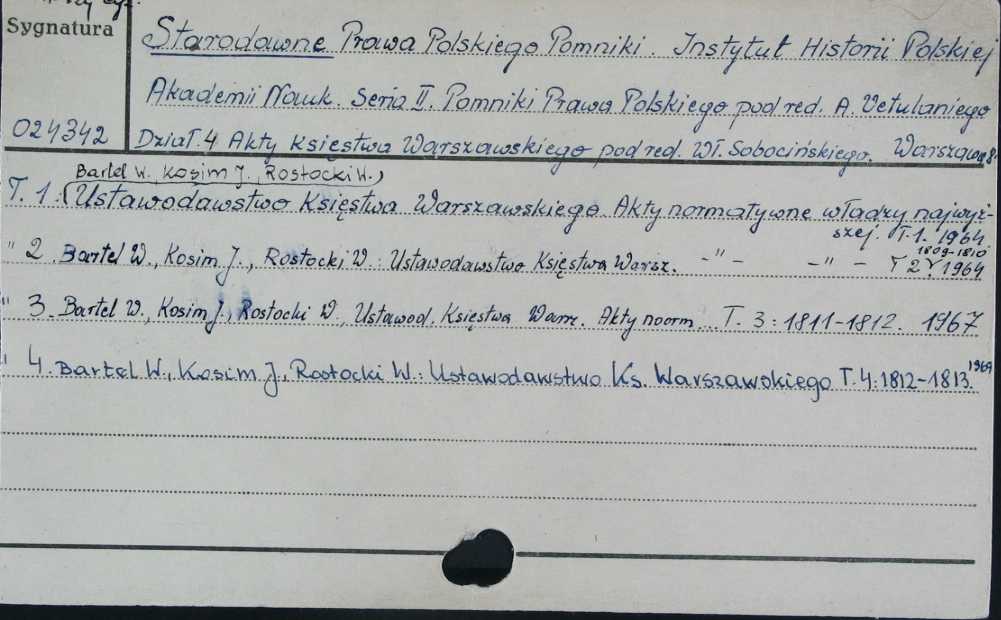 Sygnatura
Starodawne Prawa Polskiego Pomniki. Instytut Historii Polskiej
Akademii Nauk. Seria II. Pomniki Prawa Polskiego pod red. A. Vetulaniego
024342 Dział.4 Akty Księstwa Warszawskiego pod red. Wł. Sobocińskiego. Warszawa
Bartel W., Kosim J., Rostocki W.,
T. 1. (Ustawodawstwo Księstwa Warszawskiego Akty normatywne władzy najwyż-
szej. T.1. 1964
1809-1810
" 2. Bartel W., Kosim J., Rostocki W: Ustawodawstwo Księstwa Warsz. -"- -"- T 2. 1964
" 3. Bartel W., Kosim J., Rostocki W., Ustawod. Księstwa Warsz. Akty noorm... T. 3: 1811-1812. 1967
" 4. Bartel W., Kosim J., Rostocki W.: Ustawodawstwo Ks. Warszawskiego T.4: 1812-1813. 1969